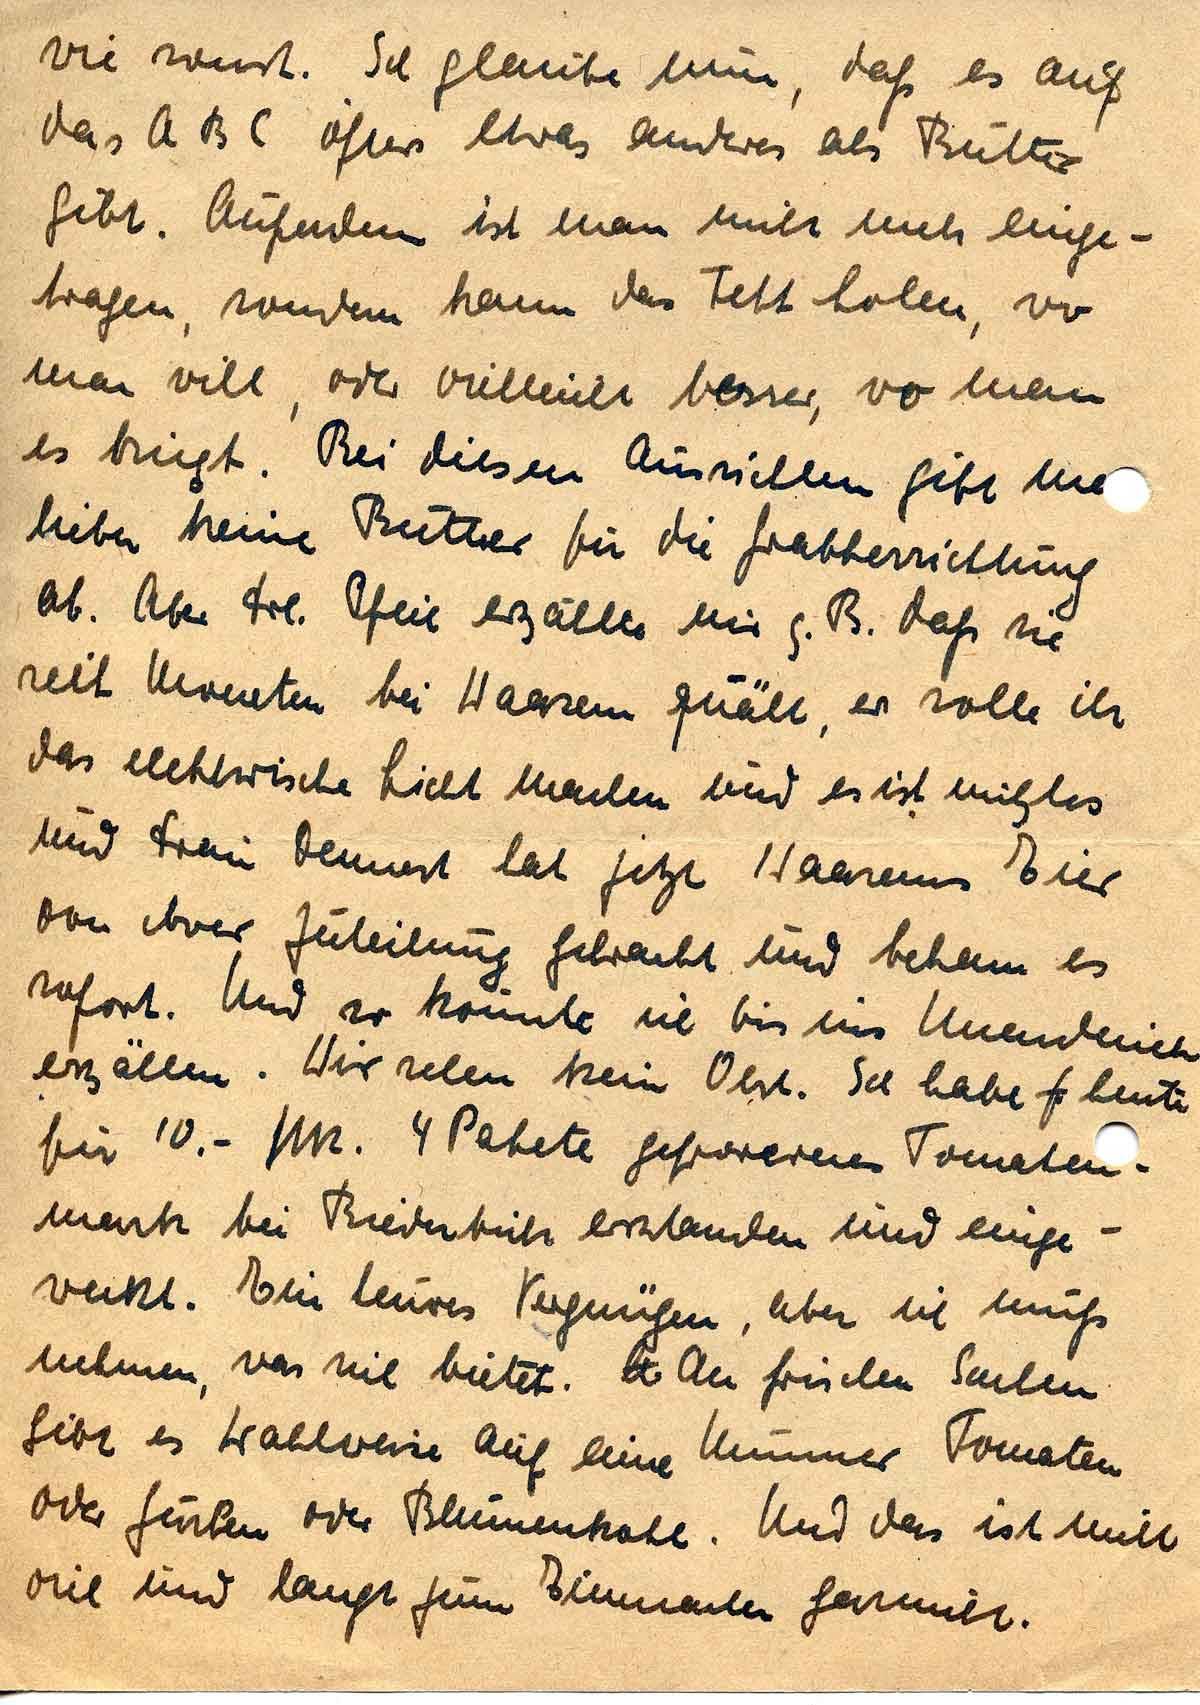 wie sonst. Ich glaube nun, daß es auf
das A B C öfters etwas anderes als Butter
gibt. Außerdem ist man nicht mehr einge-
tragen, sondern kann das Fett holen, wo
man will, oder vielleicht besser, wo man
es kriegt. Bei diesen Aussichten gibt man
lieber keine Butter für die Grabherrichtung
ab. Aber Frl. Pfeil erzählte mir z. B. daß sie
seit Monaten bei Haarem quält, er solle ihr
das elektrische Licht machen und es ist nutzlos
und Frau Dennert hat jetzt Haarems Eier
von ihrer Zuteilung gebracht und bekam es
sofort. Und so könnte ich bis ins Unendliche
erzählen. Wir sehen kein Obst. Ich habe heute
für 10.- RM. 4 Pakete gefrorenes Tomaten-
mark bei erstanden und einge-
weckt. Ein teures Vergnügen, aber ich muß
nehmen, was sich bietet. An frischen Sachen
gibt es wahlweise auf eine Nummer Tomaten
oder Gurken oder Blumenkohl. Und das ist nicht
viel und langt zum Einmachen garnicht.